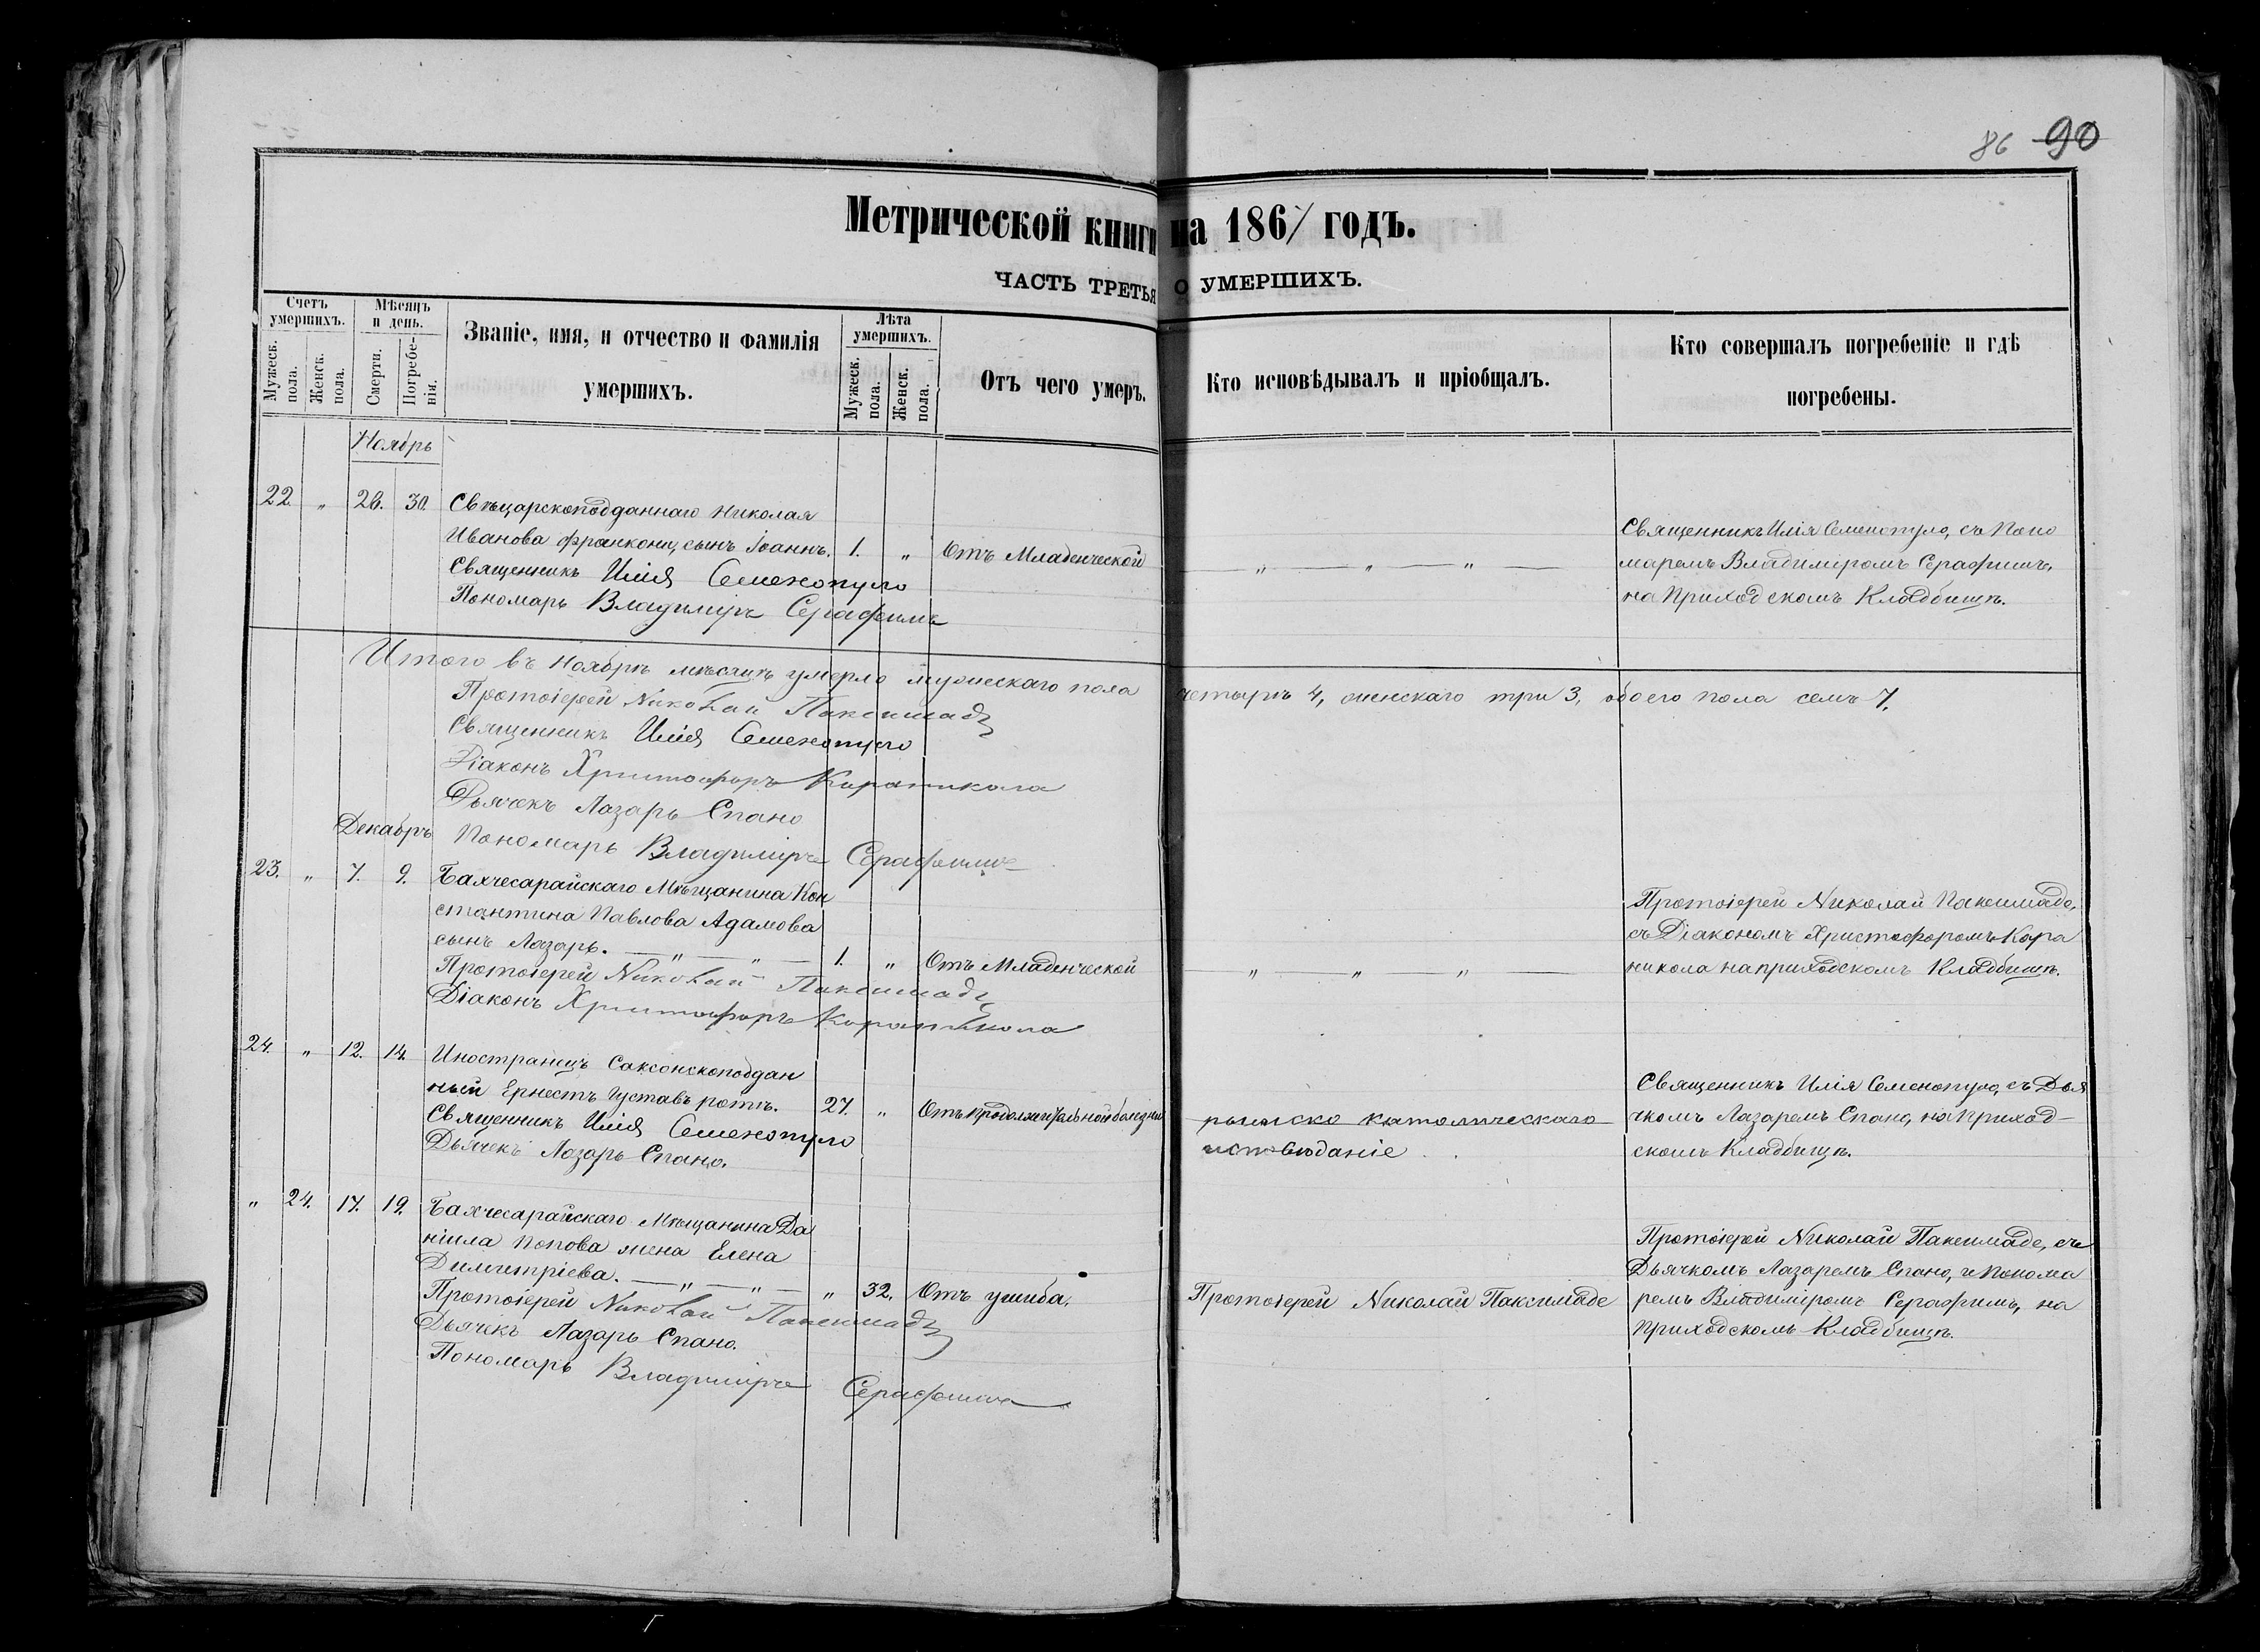 86 90
Метрической книги на 1867 годъ.
ЧАСТЬ ТРЕТЬЯ О УМЕРШИХЪ.
Счетъ умершихъ.
Мужеск. пола.
Женск. пола.
Мѣсяцъ и день.
Смерти.
Погребенія.
Званіе, имя, и отчество и фамилія
умершихъ.
Лѣта умершихъ.
Мужеск. пола.
Женск. пола.
Отъ чего умеръ.
Кто исповѣдывалъ и пріобщалъ.
Кто совершалъ погребеніе и гдѣ
погребены.
Ноябрь
22. „ 28. 30. Свѣцарскоподданнаго Николая
Иванова Франкони, сынъ Іоаннъ. 1. „ Отъ Младенческой — „ — „ — „ —
Священникъ Илія Семенопуло
Пономарь Владиміръ Серафимъ
Священникъ Илія Семенопуло, съ Поно
маремъ Владиміромъ Серафимъ,
на Приходскомъ Кладбищѣ.
Итого въ Ноябрѣ мѣсяцѣ умерло мужескаго пола четырѣ 4, женскаго три 3, обоего пола семь 7.
Протоіерей Николай Паксимаде
Священникъ Илія Семенопуло
Діаконъ Христофоръ Караникола
Дьячекъ Лазарь Спано
Пономарь Владиміръ Серафимъ
Декабрь
23. „ 7. 9. Бахчесарайскаго Мѣщанина Кон
стантина Павлова Адамова
сынъ Лазарь. — „ — „ — 1. „ Отъ Младенческой „ „ „ —
Протоіерей Николай Паксимаде
Діаконъ Христофоръ Караникола
Протоіерей Николай Паксимаде,
съ Діакономъ Христофоромъ Кара
никола на приходскомъ Кладбищѣ.
24. „ 12. 14. Иностранецъ Саксонскоподдан
ный Ернестъ Густавъ Ротъ. 27. „ Отъ продолжительной болезни
Священникъ Илія Семенопуло
Дьячекъ Лазарь Спано.
римско католическаго
исповѣданіе
Священникъ Илія Семенопуло, съ Дья
чкомъ Лазаремъ Спано, на Приход-
скомъ Кладбищѣ.
„ 24. 17. 19. Бахчесарайскаго Мѣщанина Да
ніила Попова жена Елена
Димитріева. — „ — „ — „ 32. Отъ ушиба. Протоіерей Николай Паксимаде
Протоіерей Николай Паксимаде
Дьячекъ Лазарь Спано.
Пономарь Владиміръ Серафимъ
Протоіерей Николай Паксимаде, съ
Дьячкомъ Лазаремъ Спано, и Понома
ремъ Владиміромъ Серафимъ, на
Приходскомъ Кладбищѣ.